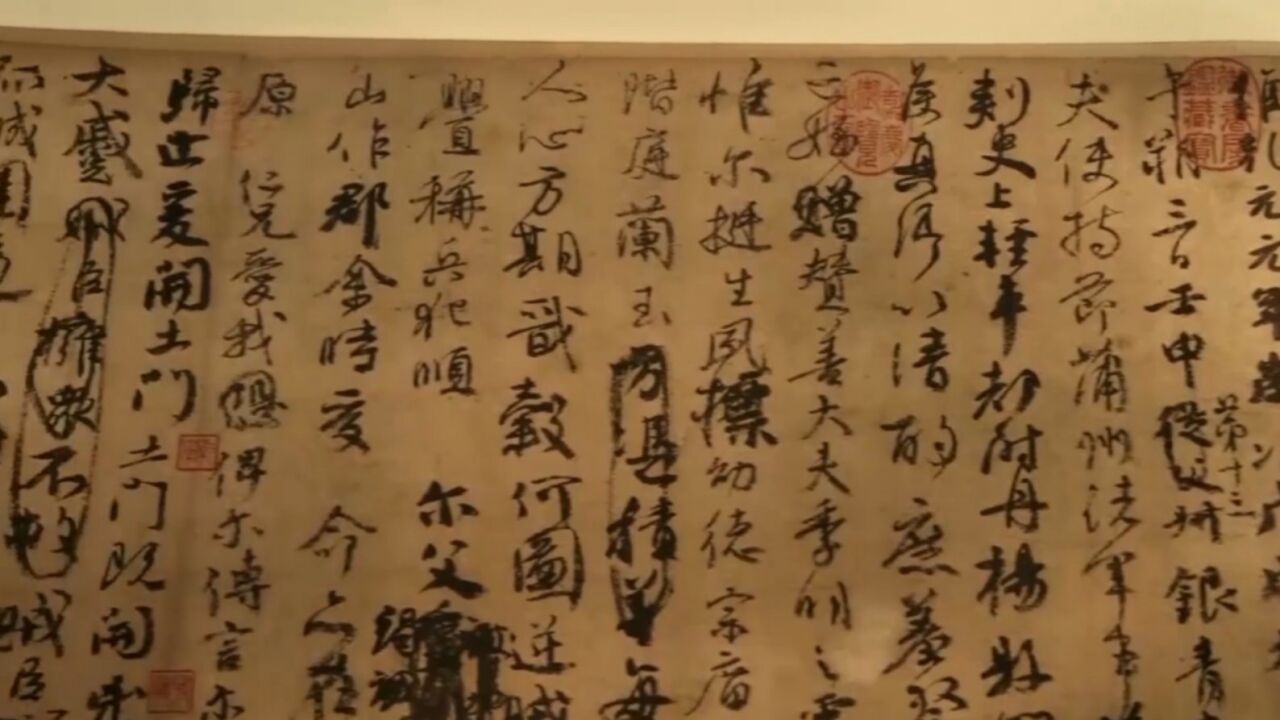 元元年歲次戊戌
午朔三日壬申第十三從父叔銀青
夫使持節蒲州諸軍事
刺史上輕車都尉丹楊縣
侯真卿以清酌庶羞祭
亡姪贈贊善大夫季明之靈
惟尔挺生夙標幼德宗廟
階庭蘭玉方憑積善每
人心方期戩穀何圖逆賊
釁稱兵犯順 尓父竭
山作郡余時受 命亦在
原 仁兄愛我俾尔傳言尔
歸止爰開土門土門既開
大蹙賊臣擁眾不救賊臣
孤城圍逼